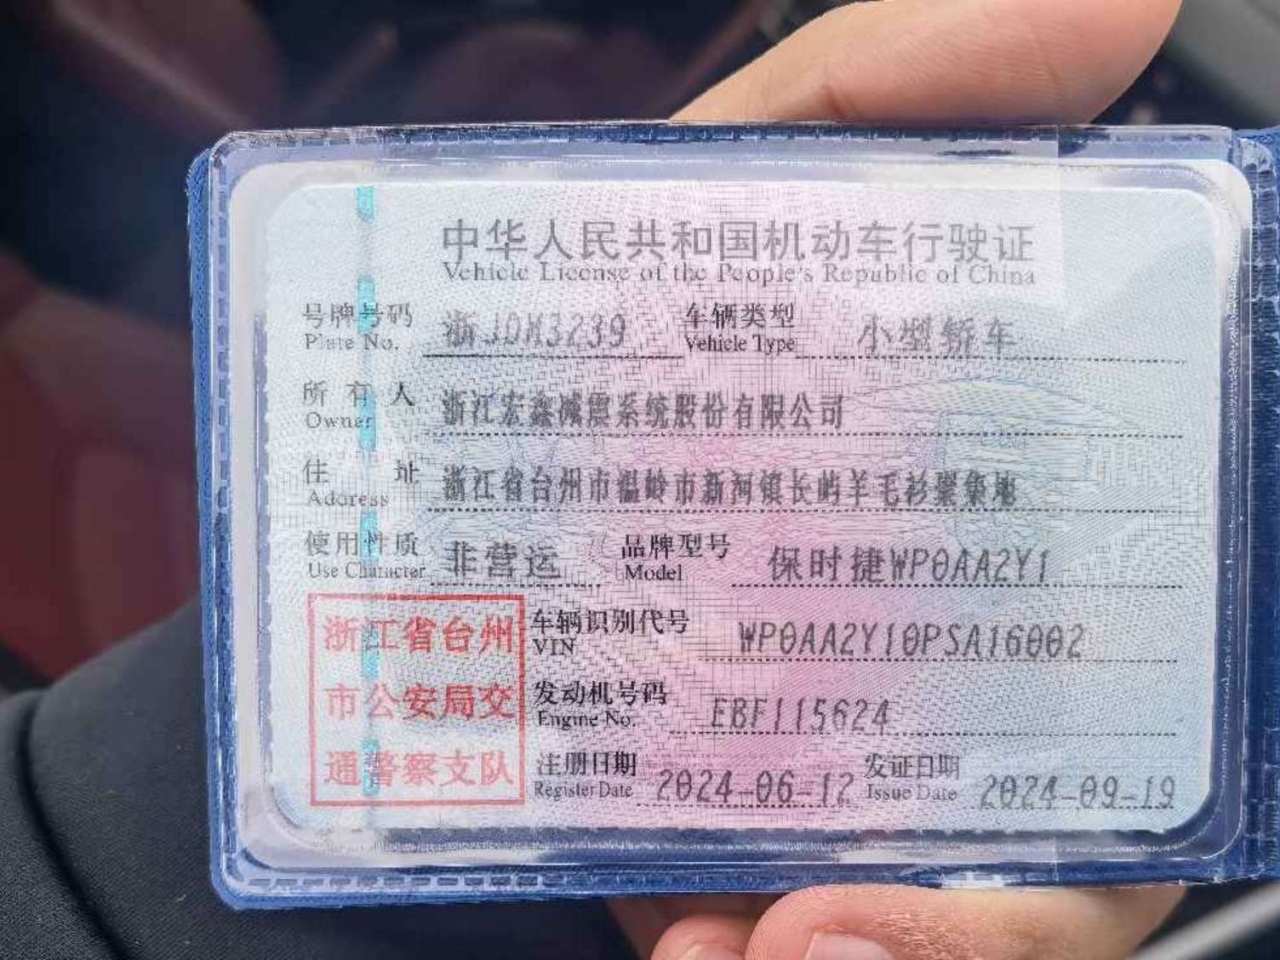 中华人民共和国机动车行驶证
Vehicle License of the People's Republic of China
号牌号码 浙JDM3239 车辆类型 小型轿车
Plate No. Vehicle Type
所有人 浙江宏鑫减震系统股份有限公司
Owner
住址 浙江省台州市温岭市新河镇长屿羊毛衫聚集地
Address
使用性质 非营运 品牌型号 保时捷WP0AA2Y1
Use Character Model
浙江省台州
市公安局交
通警察支队
车辆识别代号 WP0AA2Y10PSA16002
VIN
发动机号码 EBF115624
Engine No.
注册日期 2024-06-12 发证日期 2024-09-19
Register Date Issue Date